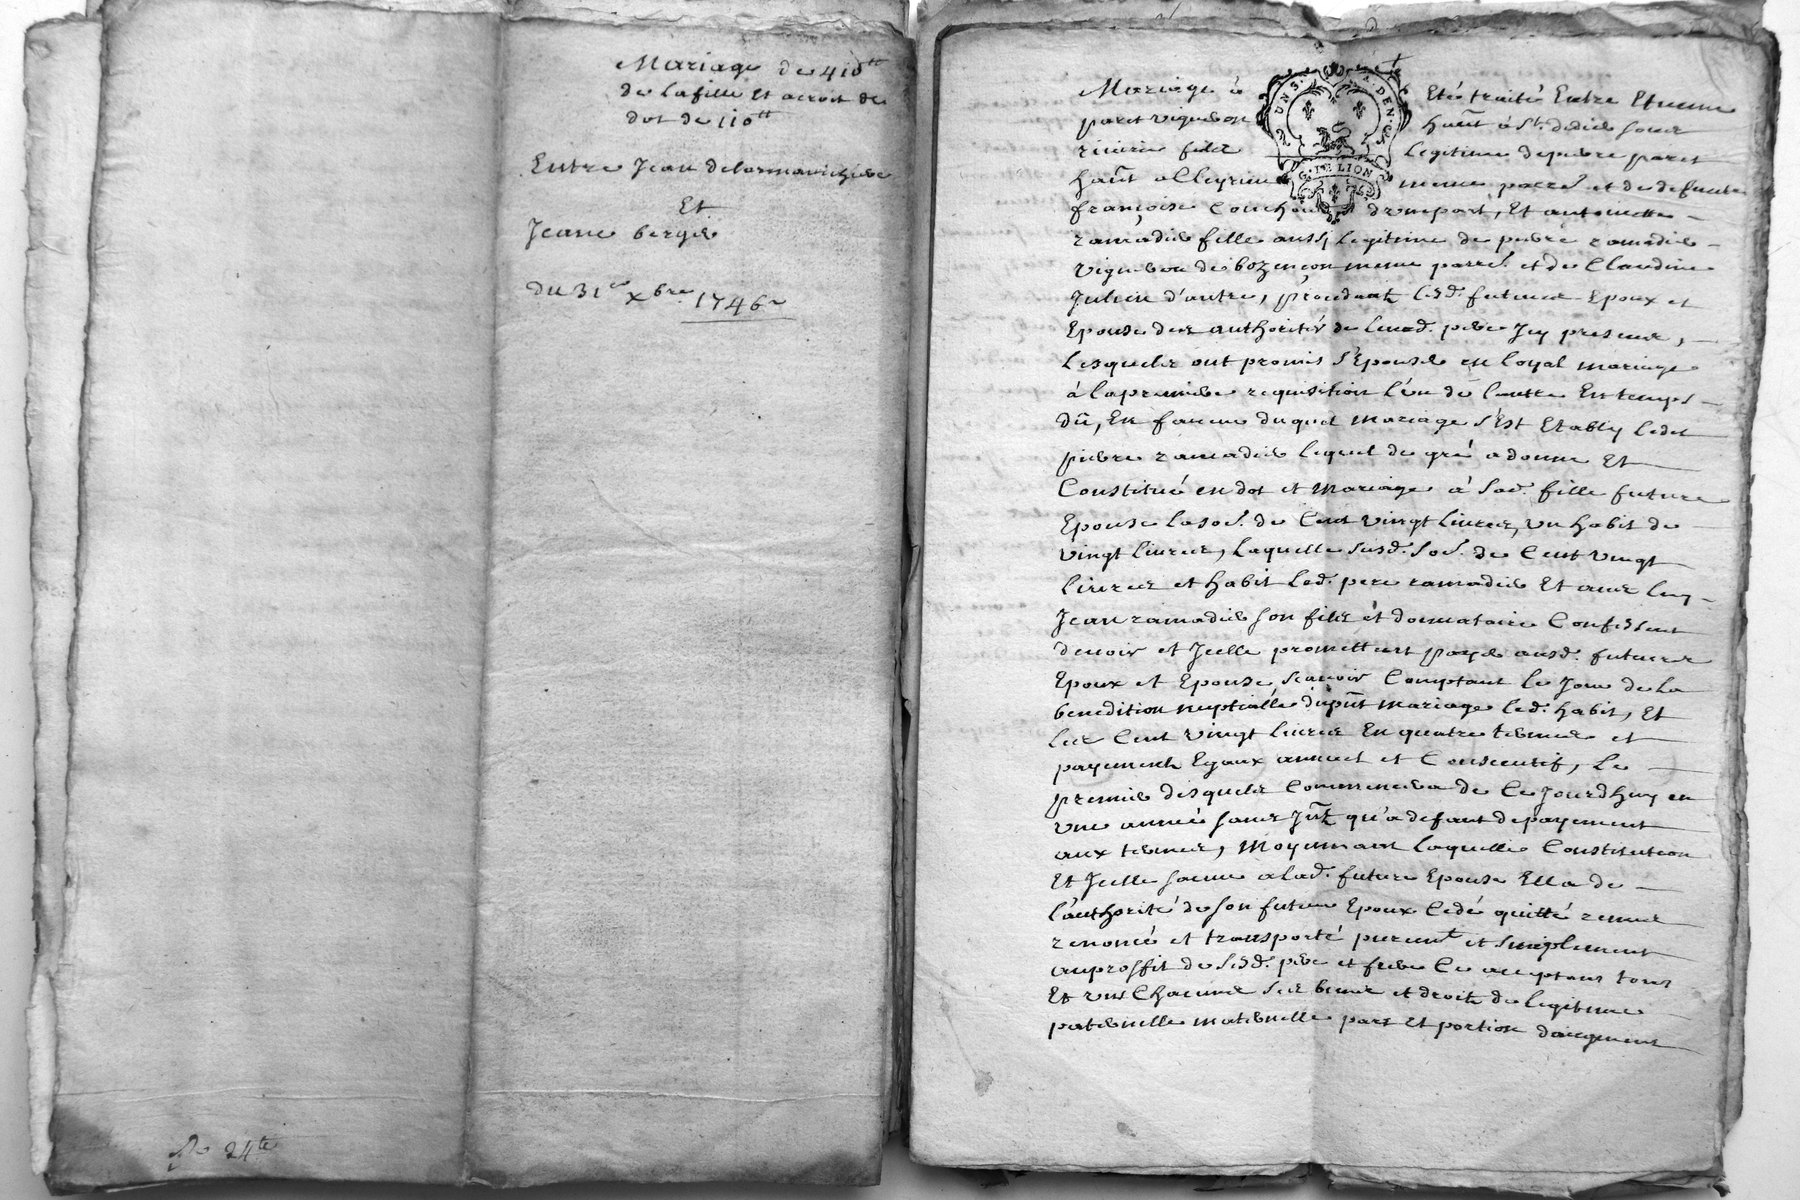 Mariage de 410tt
de la fille et acroit de
dot de 110tt
Entre Jean delarmavichére
Et
Jeane berger
du 31e xbre 1746
24te
Mariage a Eté traité Entre Etienne
paret vigneron hant à St. didier sous
riverie filz Legitime de pierre paret
hant meme parre. et de defunte
françoise drumport, Et antoinette
ramadier fille aussy Legitime de pierre ramadier
vigneron de bozançon meme parre. et de Claudine
Julien d'autre, procedant lesd. futurs Epoux et
Epouse des authorités de leurd. pere Icy presens,
Lesquelz ont promis s'Epouser en loyal mariage
à la premiere requisition l'un de l'autre En temps
dû, En faveur duquel mariage s'Est Etably ledit
pierre ramadier lequel de gré a donné Et
Constitué en dot et mariage à sad. fille future
Epouse la soe. de Cent vingt livres, un habit de
vingt livres, Laquelle susd. soe. de Cent vingt
livres et habit led. pere ramadier Et avec luy
Jean ramadier son filz et donnataire Confessent
devoir et Icelle promettent payer ausd. futurs
Epoux et Epouse scavoir Comptant le Jour de la
benedition nuptialle du pnt mariage led. habit, Et
les Cent vingt livres En quatre termes et
payements Egaux annuel et Consecutif, Le
premier desquelz Commencera de Ce Jourdhuy en
une année sans Int. qu'a defaut de payement
aux termes, Moyennant laquelle Constitution
Et Icelle faitte a lad. future Epouse Ella de
l'authorité de son futur Epoux Cedé quitté remis
renoncé et transporté purem.t et simplement
au proffit de sesd. pere et frere Ce acceptans tous
Et uns Chacuns ses biens et droits de legitime
paternelle maternelle part Et portion d'augment
UN S. DEN.
G. DE LION